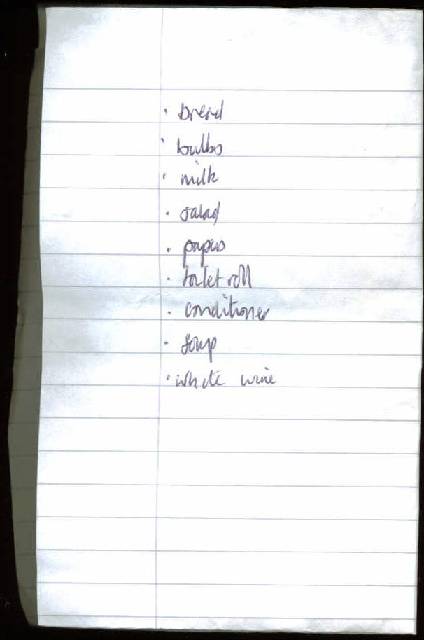 · bread
· bulbs
· milk
· salad
· papers
· toilet roll
· conditioner
· soup
· white wine